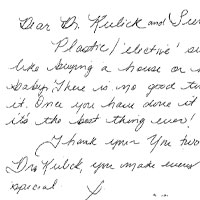 Dear Dr. Kulick and
Plastic/'elective'
like buying a house or
baby. There is no good
it. Once you have done it
it's the best thing ever!
Thank you. You two
Dr. Kulick, you made
special